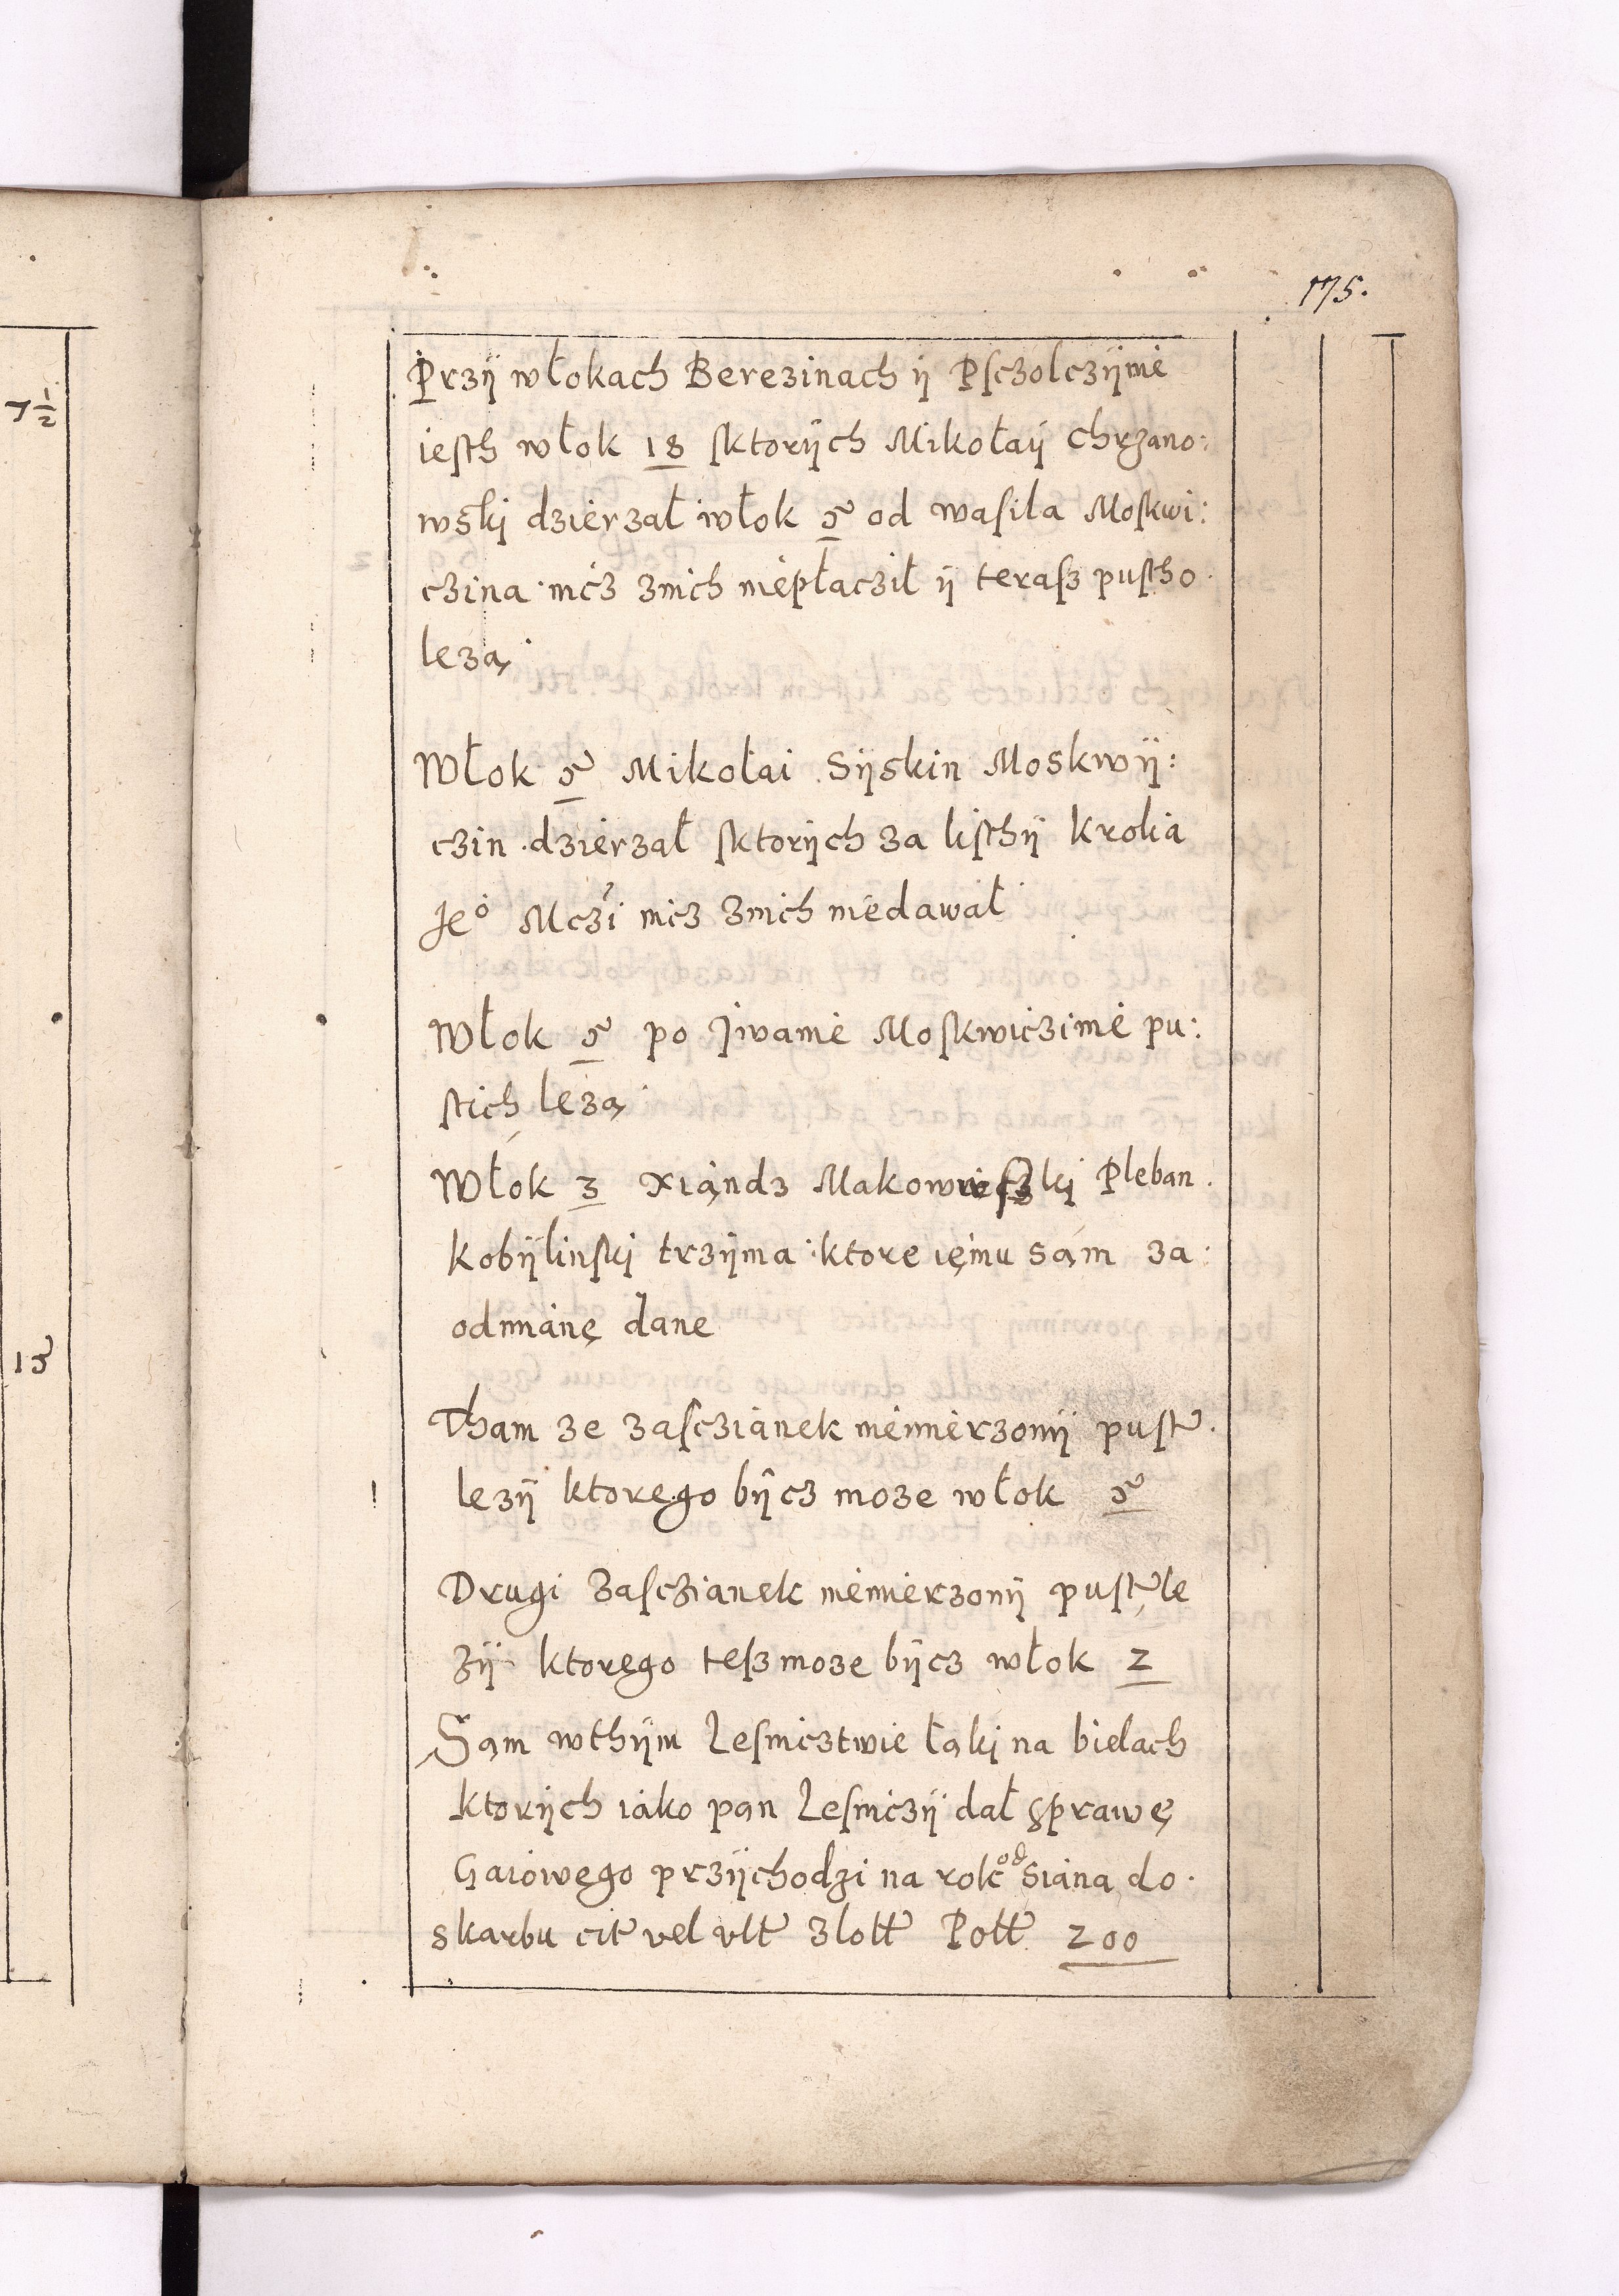 175.
7 1/2
15
Przÿ włokach Berezinach ÿ Psczolczÿnie
iesth włok 18 sktorÿch Mikołaÿ Chrzano:
wski dzierzał włok 5 od wasila Moskwi:
czina nicz znich niepłacził ÿ terasz pustho
lezą
Włok 5 Mikołai Sÿskin Moskwÿ:
czin dzierzał sktorÿch za listhÿ krolia
Je° Mczi nicz znich niedawał
Włok 5 po Jwanie Moskwiczinie pu:
stich lezą
Włok 3 xiąndz Makowieszki Pleban
kobÿlinski trzÿma ktore ięmu sąm za:
odmianę dane
Tham ze zasczianek niemierzonÿ puste
lezÿ ktorego bÿcz moze włok 5
Drugi zasczianek niemierzonÿ puste le
zÿ ktorego tesz moze bÿcz włok 2
Sąm wthÿm Lesnicztwie łąki na bielach
ktorÿch iako pan Lesniczÿ dał sprawę
Gaiowego przÿchodzi na rok od Siana do
skarbu cit vel ult złott Pott 200